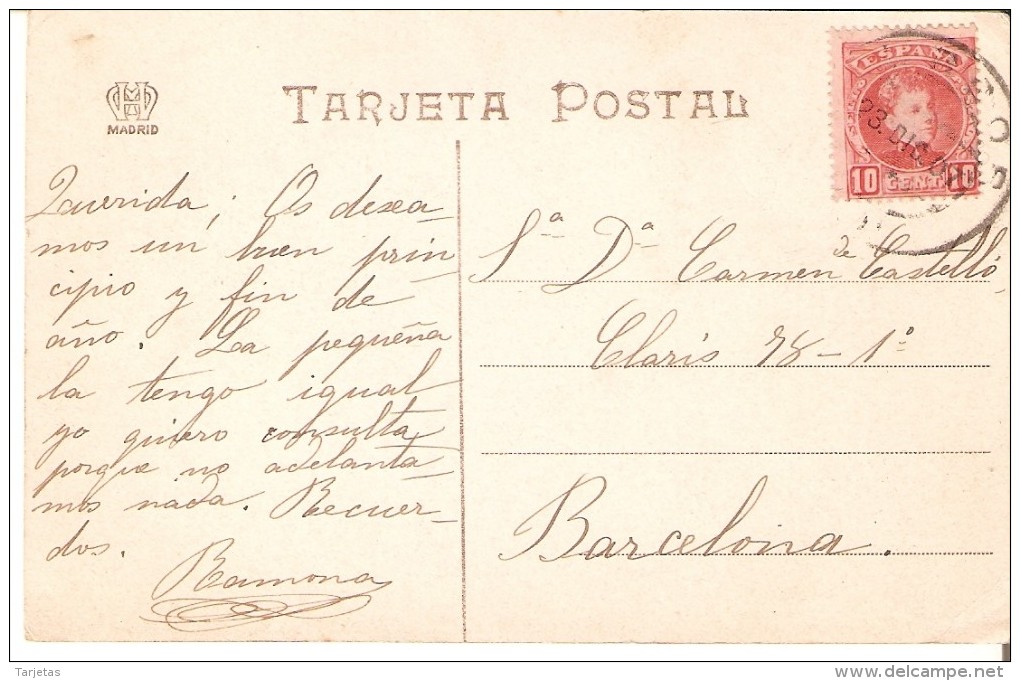 MADRID
TARJETA POSTAL
ESPAÑA
10 CENT 10
23. DIC. 0
Querida; Os desea-
mos un buen prin-
cipio y fin de
año. La pequeña
la tengo igual
yo quiero consulta
porque no adelanta-
mos nada. Recuer-
dos.
Ramona
Sª Dª Carmen de Castelló
Claris 78-1º
Barcelona.
Tarjetas
delcampe.net